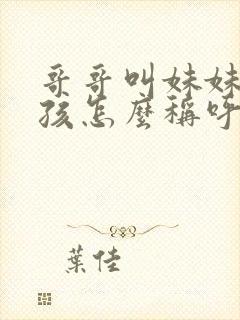 哥哥叫妹妹
孩怎麼稱呼
葉佳